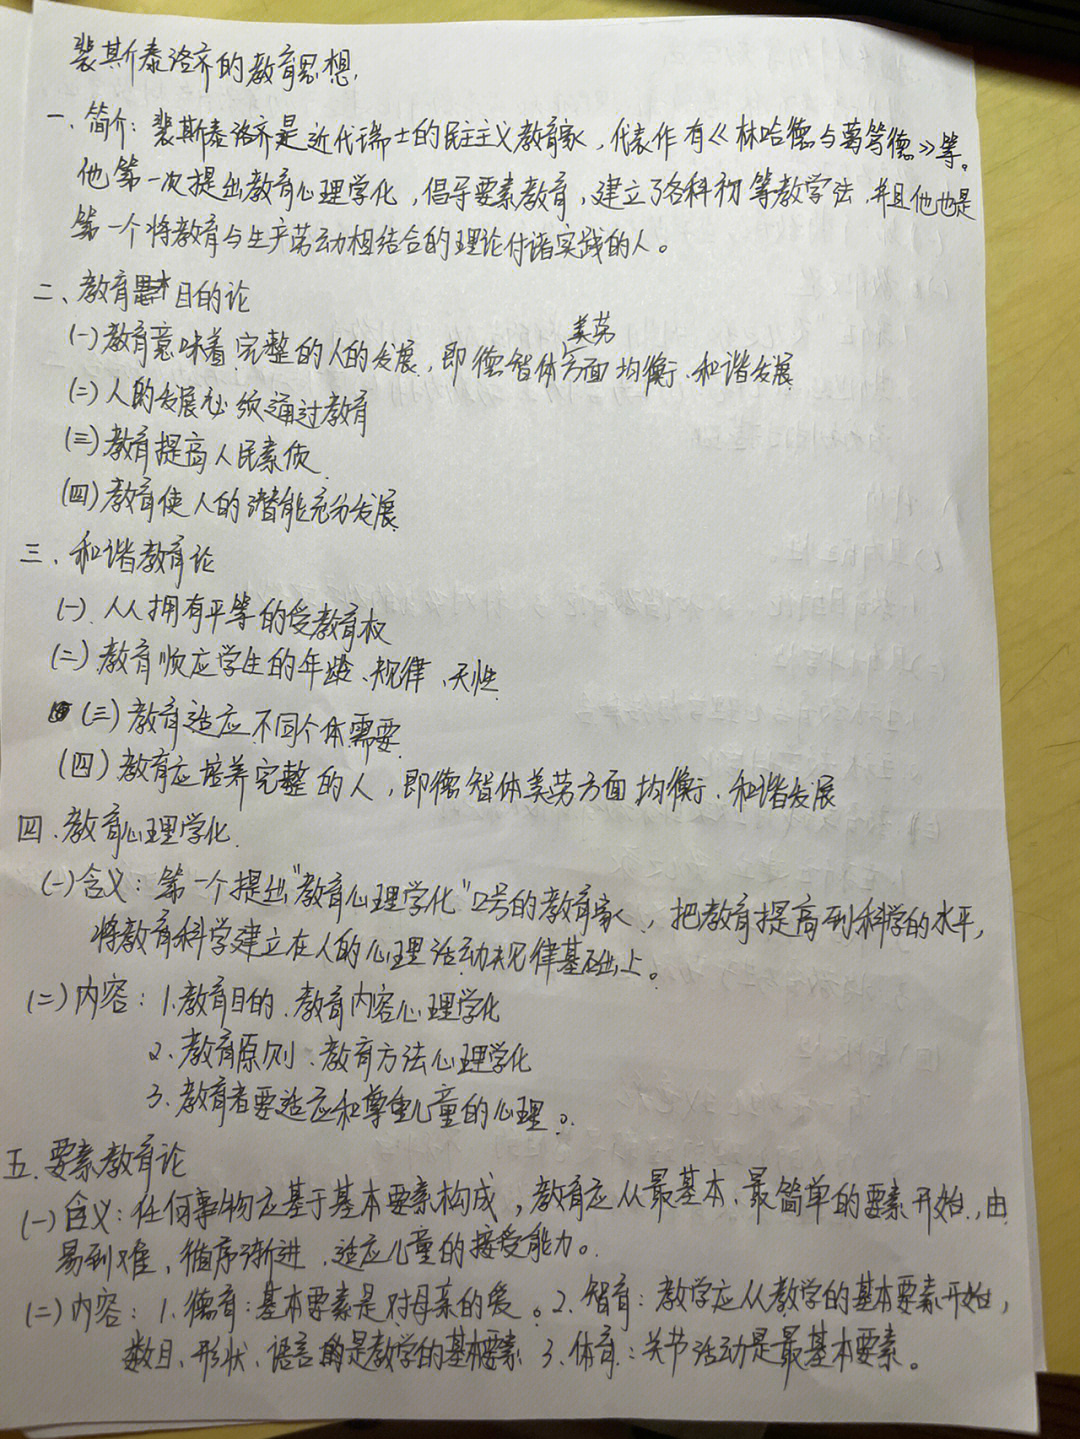 裴斯泰洛齐的教育思想.
一、简介：裴斯泰洛齐是近代瑞士的民主主义教育家，代表作有《林哈德与葛笃德》等。
他第一次提出教育心理学化，倡导要素教育，建立了各科初等教学法，并且他也是
第一个将教育与生产劳动相结合的理论付诸实践的人。
二、教育基本目的论
美劳
(一)教育意味着完整的人的发展，即德智体方面均衡、和谐发展
(二)人的发展必须通过教育
(三)教育提高人民素质
(四)教育使人的潜能充分发展
三、和谐教育论
(一)人人拥有平等的受教育权
(二)教育顺应学生的年龄、规律、天性
(三)教育适应不同个体需要
(四)教育应培养完整的人，即德智体美劳方面均衡、和谐发展
四、教育心理学化
(一)含义：第一个提出"教育心理学化"口号的教育家，把教育提高到科学的水平，
将教育科学建立在人的心理活动规律基础上。
(二)内容：1.教育目的、教育内容心理学化
2、教育原则、教育方法心理学化
3、教育者要适应和尊重儿童的心理。
五、要素教育论
(一)含义：任何事物应基于基本要素构成，教育应从最基本、最简单的要素开始，由
易到难、循序渐进、适应儿童的接受能力。
(二)内容：1、德育：基本要素是对母亲的爱。2、智育：教学应从教学的基本要素开始，
数目、形状、语言是教学的基本要素 3、体育：关节活动是最基本要素。